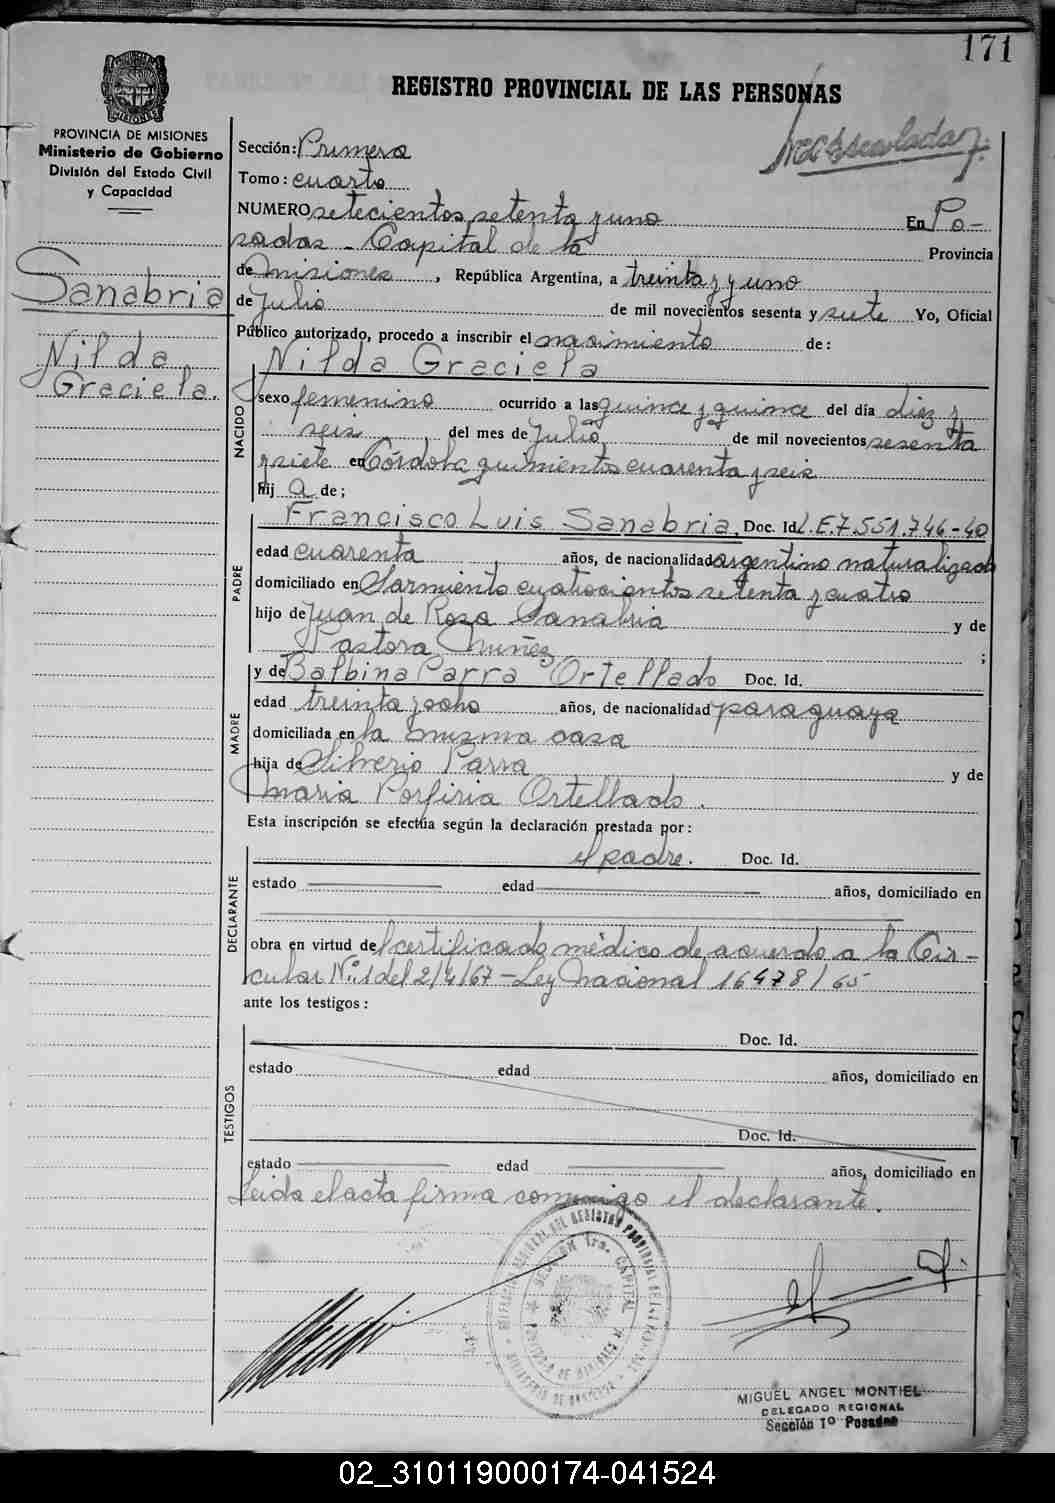 171
REGISTRO PROVINCIAL DE LAS PERSONAS
PROVINCIA DE MISIONES
Ministerio de Gobierno
División del Estado Civil
y Capacidad
Sanabria
Nilda
Graciela.
Sección: Primera
Tomo: cuarto
NUMERO setecientos setenta y uno En Po-
sadas - Capital de la Provincia
de Misiones, República Argentina, a treinta y uno
de Julio de mil novecientos sesenta y siete Yo, Oficial
Público autorizado, procedo a inscribir el nacimiento de:
NACIDO
Nilda Graciela
sexo femenino ocurrido a las quince y quince del día diez y
seis del mes de Julio de mil novecientos sesenta
y siete en Córdoba quinientos cuarenta y seis
hij a de;
PADRE
Francisco Luis Sanabria, Doc. Id. L.E.7.551.746-40
edad cuarenta años, de nacionalidad argentino naturalizado
domiciliado en Sarmiento cuatrocientos setenta y cuatro
hijo de Juan de Rosa Sanabria y de
Pastora Nuñez ;
MADRE
y de Balbina Parra Ortellado Doc. Id.
edad treinta y ocho años, de nacionalidad paraguaya
domiciliada en la misma casa
hija de Silverio Parra y de
Maria Porfiria Ortellado.
Esta inscripción se efectúa según la declaración prestada por:
DECLARANTE
el padre. Doc. Id.
estado edad años, domiciliado en
obra en virtud del certificado médico de acuerdo a la Cir-
cular N° 1 del 2/4/67 - Ley Nacional 16478/65
ante los testigos:
TESTIGOS
Doc. Id.
estado edad años, domiciliado en
Doc. Id.
estado edad años, domiciliado en
Leida el acta firma conmigo el declarante.
SECCION 1ra. CAPITAL
MIGUEL ANGEL MONTIEL
DELEGADO REGIONAL
Sección 1º Posadas
02_310119000174-041524